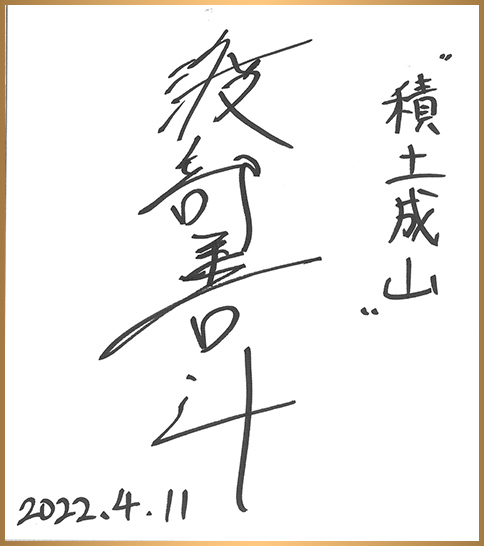 "積土成山"
渡部善斗
2022.4.11